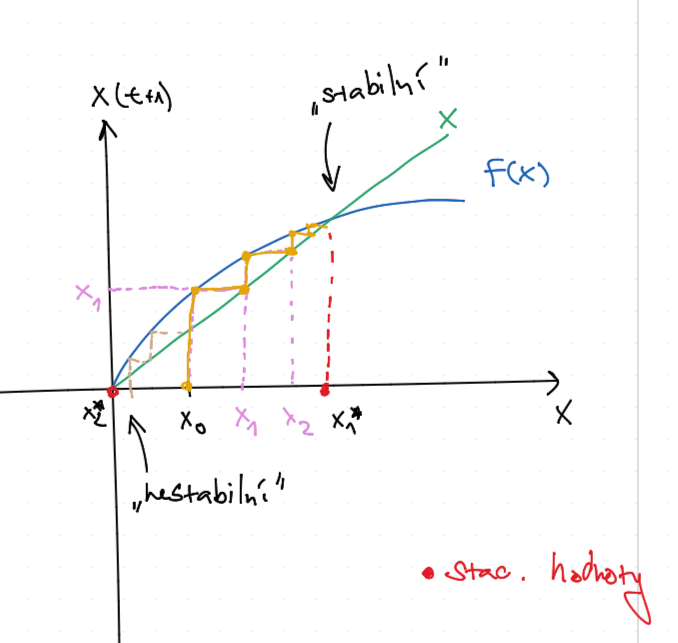 „stabilní"
x(t+1)
x
f(x)
x₁
x₂*
x₀
x₁
x₂
x₁*
x
„nestabilní"
• stac. hodnoty